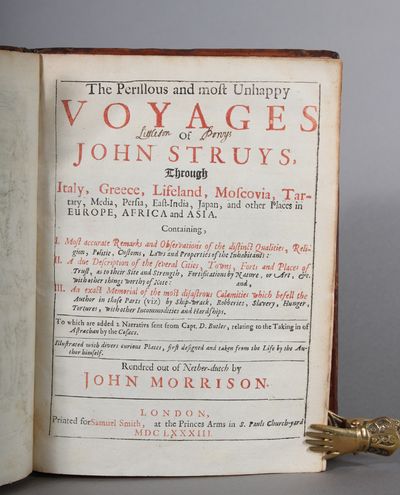 The Perillous and most Unhappy
VOYAGES
Littleton Of Powys
JOHN STRUYS,
Through
Italy, Greece, Lifeland, Moscovia, Tar-
tary, Media, Persia, East-India, Japan, and other Places in
EUROPE, AFRICA and ASIA.
Containing,
I. Most accurate Remarks and Observations of the distinct Qualities, Reli-
gion, Politie, Customs, Laws and Properties of the Inhabitants:
II. A due Description of the several Cities, Towns, Forts and Places of
Trust, as to their Site and Strength, Fortifications by Nature, or Art, &c.
with other things worthy of Note: and,
III. An exact Memorial of the most disastrous Calamities which befell the
Author in those Parts (viz) by Ship-wrack, Robberies, Slavery, Hunger,
Tortures, with other Incommodities and Hardships.
To which are added 2 Narratives sent from Capt. D. Butler, relating to the Taking in of
Astrachan by the Cosacs.
Illustrated with divers curious Plates, first designed and taken from the Life by the Au-
thor himself.
Rendred out of Nether-dutch by
JOHN MORRISON.
LONDON,
Printed for Samuel Smith, at the Princes Arms in S. Pauls Church-yard
MDCLXXXIII.